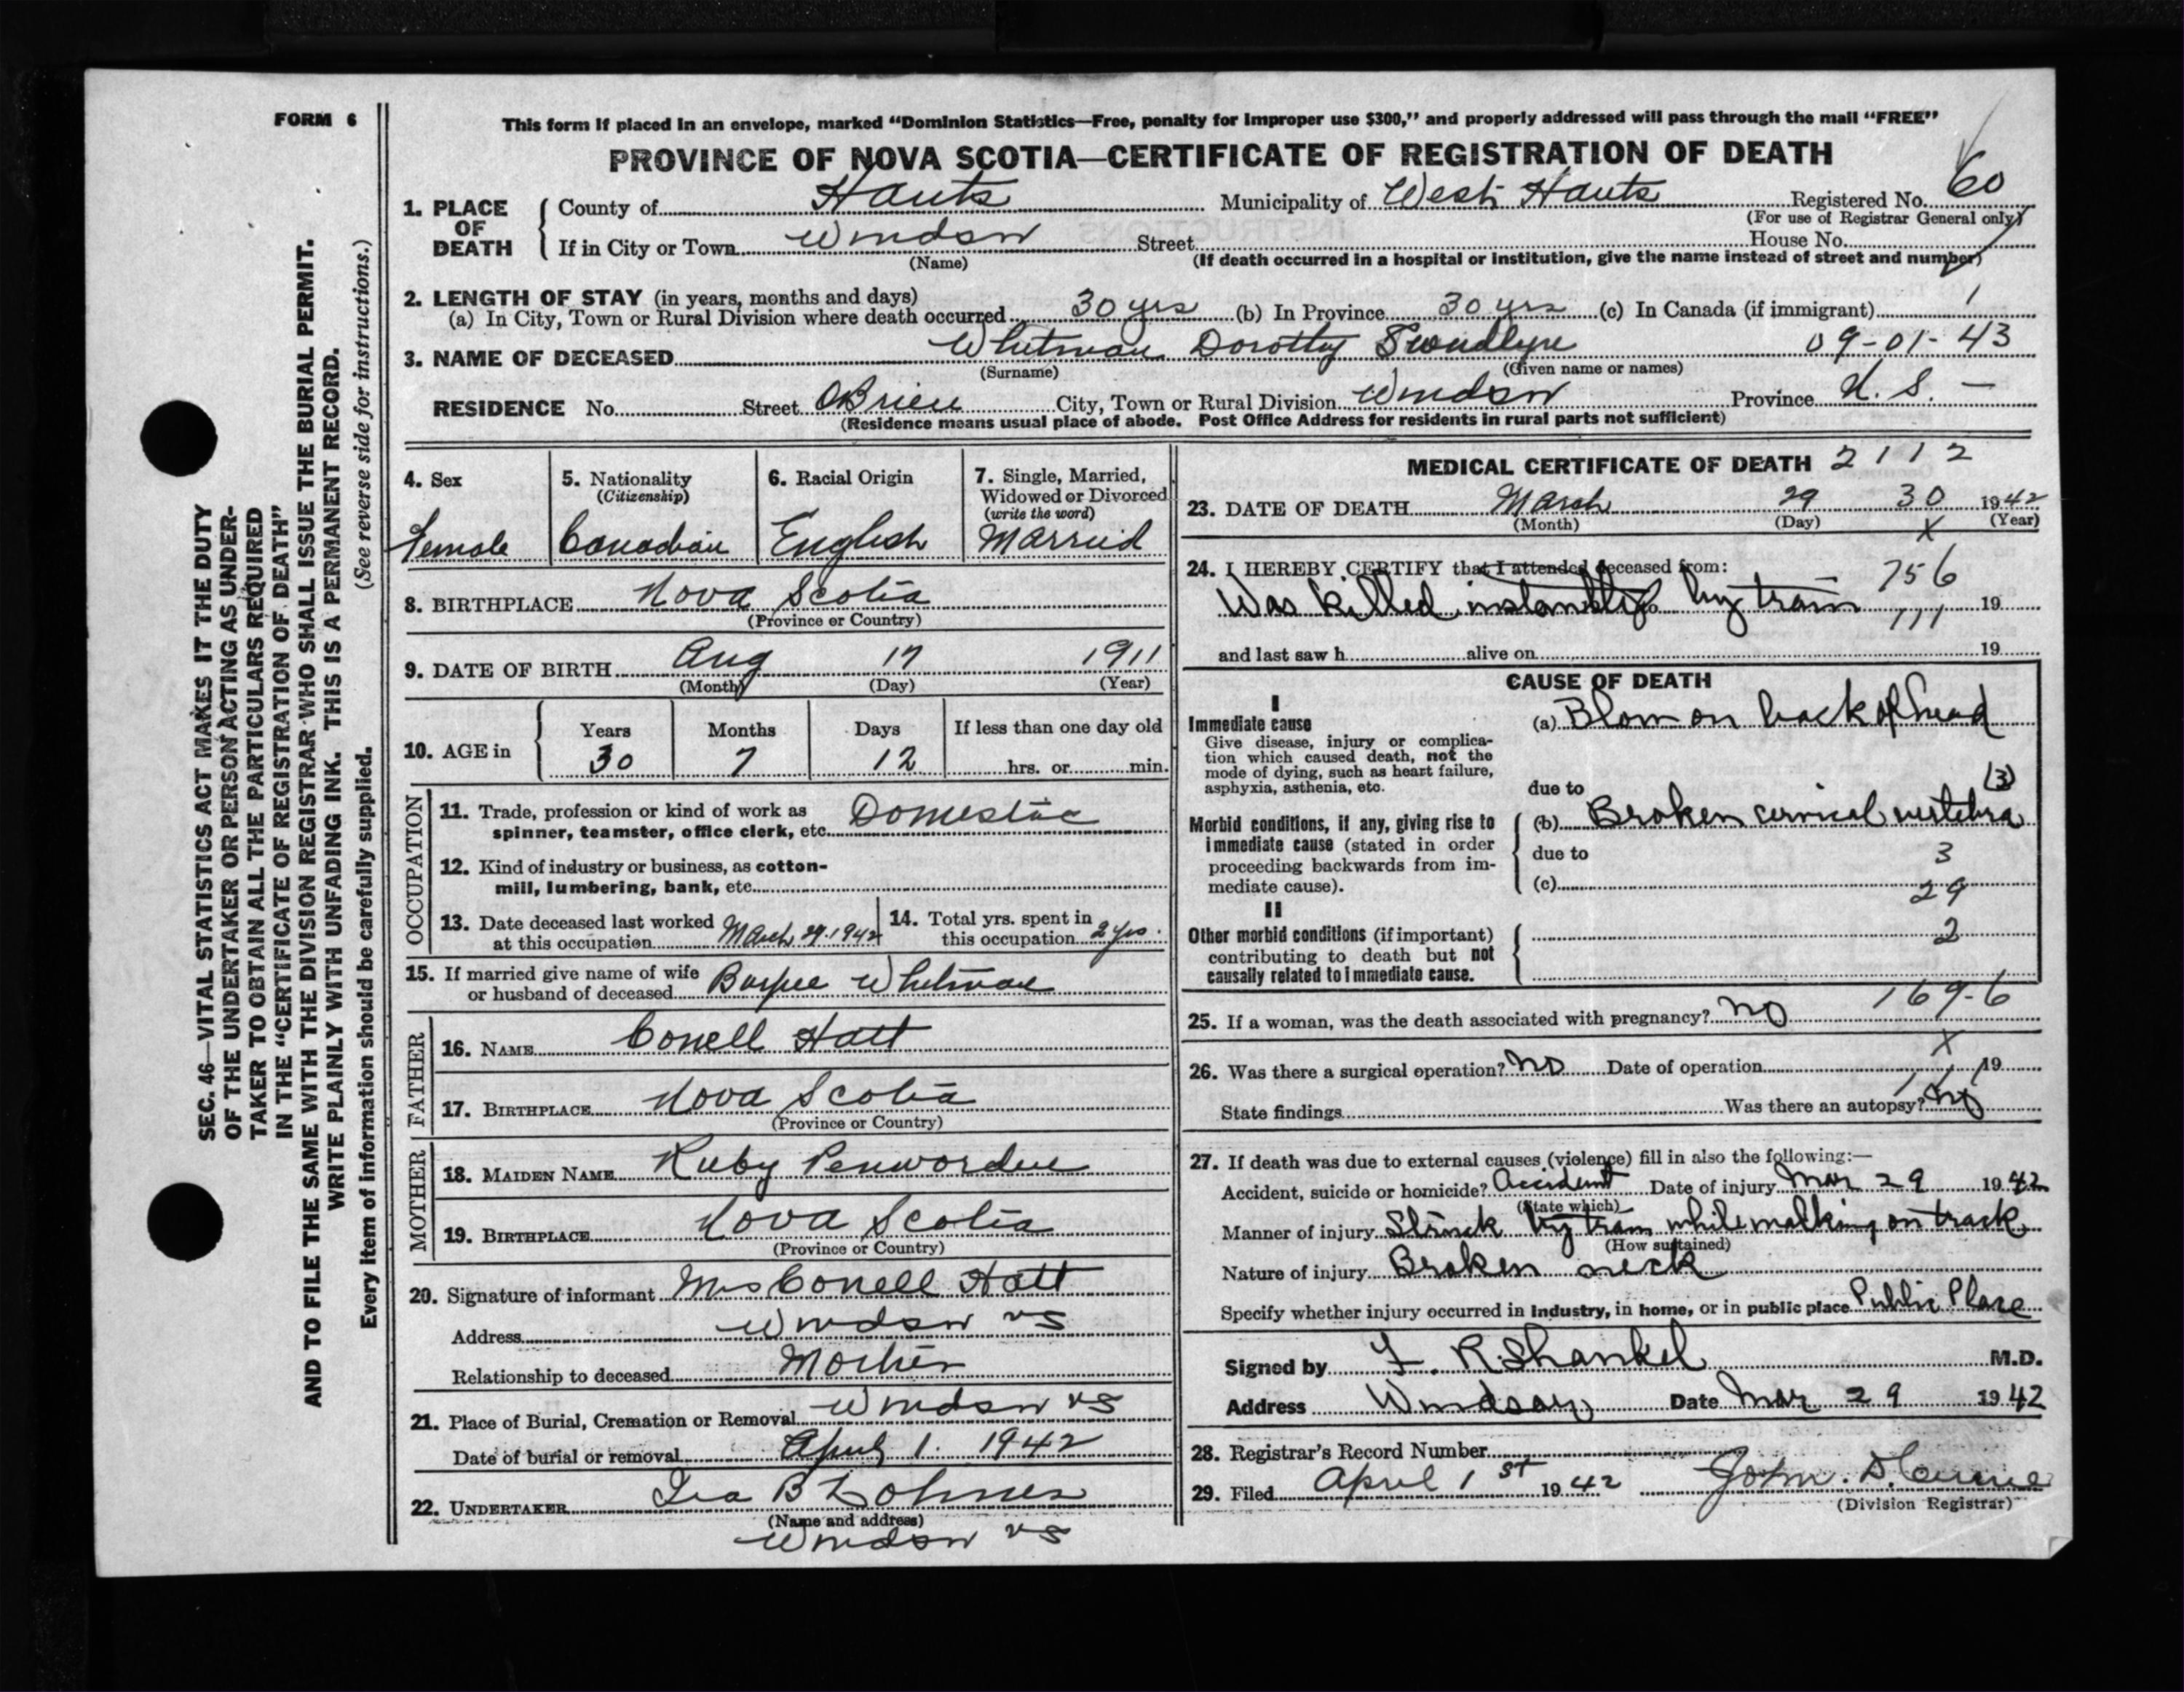 FORM 6
This form if placed in an envelope, marked "Dominion Statistics—Free, penalty for improper use $300," and properly addressed will pass through the mail "FREE"
PROVINCE OF NOVA SCOTIA—CERTIFICATE OF REGISTRATION OF DEATH
1. PLACE OF DEATH County of Hants Municipality of West Hants Registered No. 60
(For use of Registrar General only)
If in City or Town Windsor Street House No.
(Name) (If death occurred in a hospital or institution, give the name instead of street and number)
2. LENGTH OF STAY (in years, months and days)
(a) In City, Town or Rural Division where death occurred 30 yrs (b) In Province 30 yrs (c) In Canada (if immigrant)
3. NAME OF DECEASED Whitman Dorothy 09-01-43
(Surname) (Given name or names)
RESIDENCE No. Street OBrien City, Town or Rural Division Windsor Province N.S. —
(Residence means usual place of abode. Post Office Address for residents in rural parts not sufficient)
4. Sex
Female
5. Nationality
(Citizenship)
Canadian
6. Racial Origin
English
7. Single, Married,
Widowed or Divorced
(write the word)
Married
8. BIRTHPLACE Nova Scotia
(Province or Country)
9. DATE OF BIRTH Aug 17 1911
(Month) (Day) (Year)
10. AGE in Years Months Days If less than one day old
30 7 12 hrs. or min.
OCCUPATION
11. Trade, profession or kind of work as
spinner, teamster, office clerk, etc. Domestic
12. Kind of industry or business, as cotton-
mill, lumbering, bank, etc.
13. Date deceased last worked
at this occupation March 29 1942
14. Total yrs. spent in
this occupation 2 yrs.
15. If married give name of wife
or husband of deceased Burpee Whitman
FATHER
16. NAME Conell Hatt
17. BIRTHPLACE Nova Scotia
(Province or Country)
MOTHER
18. MAIDEN NAME Ruby
19. BIRTHPLACE Nova Scotia
(Province or Country)
20. Signature of informant Mrs Conell Hatt
Address Windsor NS
Relationship to deceased Mother
21. Place of Burial, Cremation or Removal Windsor NS
Date of burial or removal April 1. 1942
22. UNDERTAKER Ira B Lohnes
(Name and address)
Windsor NS
MEDICAL CERTIFICATE OF DEATH 2112
23. DATE OF DEATH March 29 30 1942
(Month) (Day) (Year)
X
24. I HEREBY CERTIFY that I attended deceased from: 756
Was killed instantly by train 19
111
and last saw h alive on 19
CAUSE OF DEATH
I
Immediate cause
Give disease, injury or complica-
tion which caused death, not the
mode of dying, such as heart failure,
asphyxia, asthenia, etc.
(a) Blow on back of head
due to (3)
Morbid conditions, if any, giving rise to
immediate cause (stated in order
proceeding backwards from im-
mediate cause).
(b) Broken cervical vertebra
due to 3
(c) 29
II
Other morbid conditions (if important)
contributing to death but not
causally related to immediate cause.
2
169-6
25. If a woman, was the death associated with pregnancy? no
X
26. Was there a surgical operation? no Date of operation 19
State findings Was there an autopsy? no
27. If death was due to external causes (violence) fill in also the following:—
Accident, suicide or homicide? Accident Date of injury Mar 29 1942
(State which)
Manner of injury Struck by train while walking on track
(How sustained)
Nature of injury Broken neck
Specify whether injury occurred in industry, in home, or in public place Public Place
Signed by F. R. Shankel M.D.
Address Windsor Date Mar 29 1942
28. Registrar's Record Number
29. Filed April 1st 1942 John D.
(Division Registrar)
SEC. 46—VITAL STATISTICS ACT MAKES IT THE DUTY
OF THE UNDERTAKER OR PERSON ACTING AS UNDER-
TAKER TO OBTAIN ALL THE PARTICULARS REQUIRED
IN THE "CERTIFICATE OF REGISTRATION OF DEATH"
AND TO FILE THE SAME WITH THE DIVISION REGISTRAR WHO SHALL ISSUE THE BURIAL PERMIT.
WRITE PLAINLY WITH UNFADING INK. THIS IS A PERMANENT RECORD.
Every item of information should be carefully supplied. (See reverse side for instructions.)